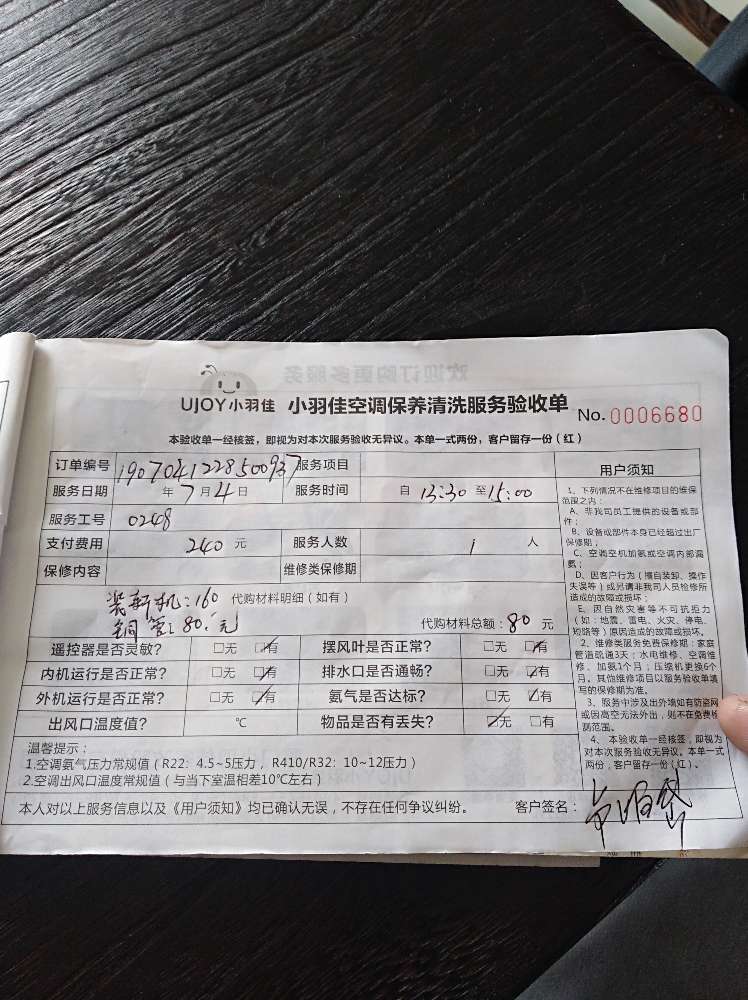 UJOY小羽佳 小羽佳空调保养清洗服务验收单 No. 0006680
本验收单一经核签，即视为对本次服务验收无异议。本单一式两份，客户留存一份（红）
订单编号 1907041228500937 服务项目
服务日期 年 7 月 4 日 服务时间 自 13:30 至 15:00
服务工号 0248
支付费用 240 元 服务人数 1 人
保修内容 维修类保修期
装新机：160 代购材料明细（如有）
铜管：80.元 代购材料总额：80 元
遥控器是否灵敏？ □无 □有 摆风叶是否正常？ □无 □有
内机运行是否正常？ □无 □有 排水口是否通畅？ □无 □有
外机运行是否正常？ □无 □有 氨气是否达标？ □无 □有
出风口温度值？ ℃ 物品是否有丢失？ □无 □有
温馨提示：
1.空调氨气压力常规值（R22: 4.5~5压力， R410/R32: 10~12压力）
2.空调出风口温度常规值（与当下室温相差10℃左右）
本人对以上服务信息以及《用户须知》均已确认无误，不存在任何争议纠纷。 客户签名：
用户须知
1、下列情况不在维修项目的维保
范围之内：
A、非我司员工提供的设备或部
件；
B、设备或部件本身已经超过出厂
保修期；
C、空调空机加氨或空调内部漏
氨；
D、因客户行为（擅自装卸、操作
失误等）或另请非我司人员检修所
造成的故障或损坏；
E、因自然灾害等不可抗拒力
（如：地震、雷电、火灾、停电、
短路等）原因造成的故障或损坏。
2、维修类服务免费保修期：家庭
管道疏通3天；水电维修、空调维
修、加氨1个月；压缩机更换6个
月。其他维修项目以服务验收单填
写的保修期为准。
3、服务中涉及出外墙如有防盗网
或因高空无法外出，则不在免费检
测范围。
4、本验收单一经核签，即视为
对本次服务验收无异议。本单一式
两份，客户留存一份（红）。